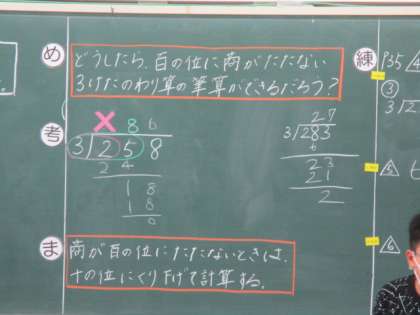 め
どうしたら、百の位に商がたたない
3けたのわり算の筆算ができるだろう?
考
× 8 6
3)258
24
18
18
0
27
3)283
6
23
21
2
ま
商が百の位にたたないときは、
十の位にくり下げて計算する。
練
P35 4
③
3)2
5
6